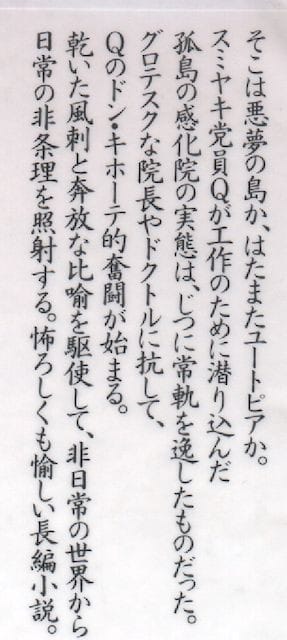 そこは悪夢の島か、はたまたユートピアか。
スミヤキ党員Qが工作のために潜り込んだ
孤島の感化院の実態は、じつに常軌を逸したものだった。
グロテスクな院長やドクトルに抗して、
Qのドン・キホーテ的奮闘が始まる。
乾いた風刺と奔放な比喩を駆使して、非日常の世界から
日常の非条理を照射する。怖ろしくも愉しい長編小説。